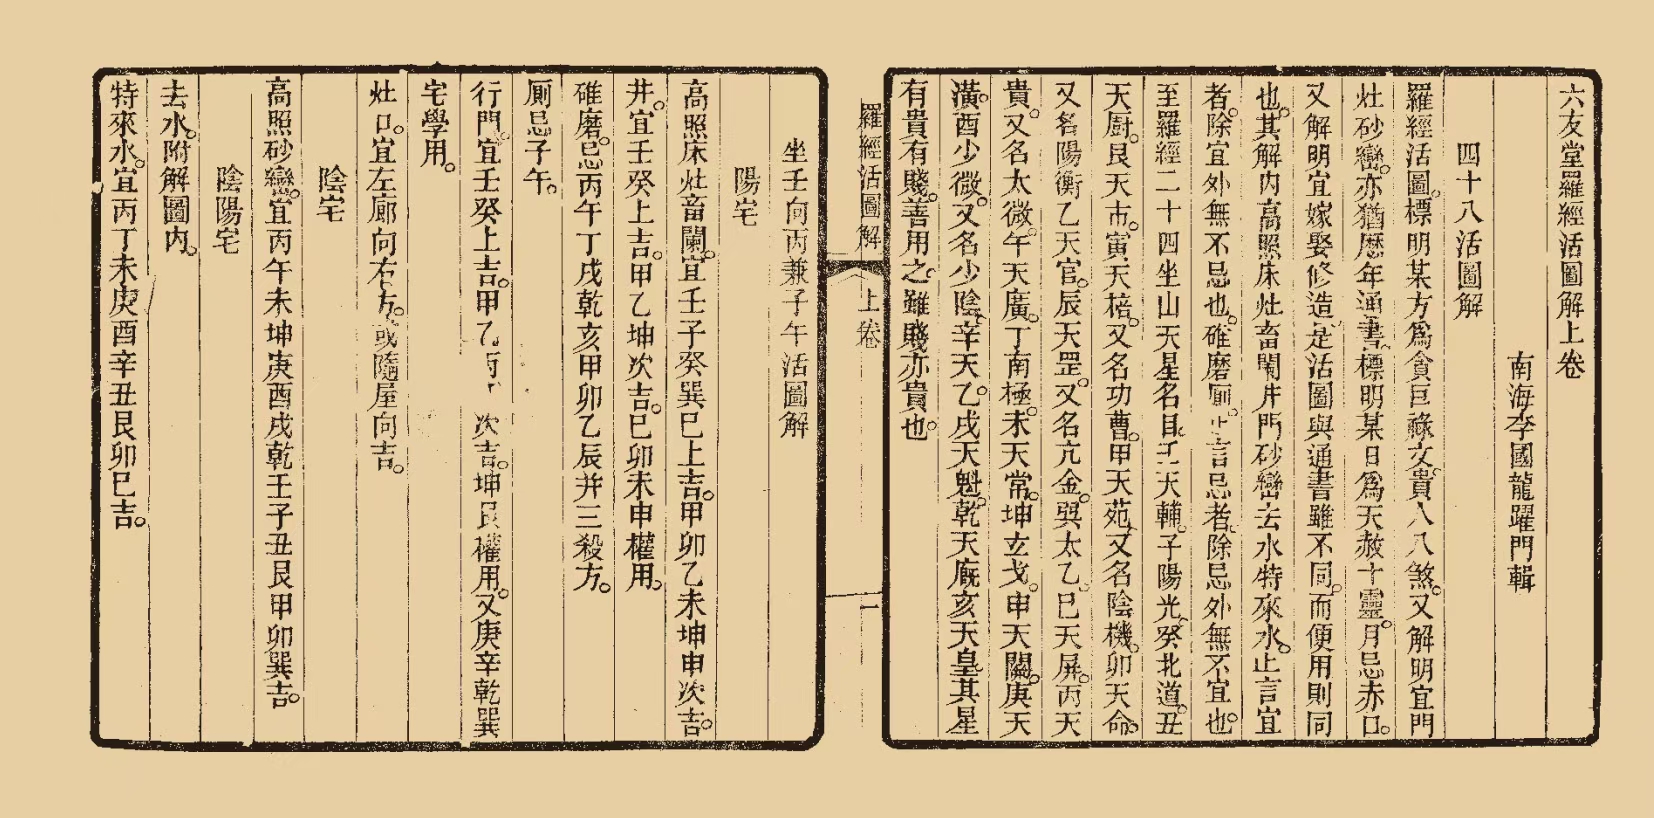 六友堂羅經活圖解上卷
南海李國龍躍門輯
四十八活圖解
羅經活圖。標明某方爲貪巨祿文。貴人八煞。又解明宜門
灶砂巒。亦猶歷年通書。標明某日爲天赦十靈。月忌赤口。
又解明宜嫁娶修造。是活圖與通書雖不同。而便用則同
也。其解內高照床灶畜闌井門砂巒去水特來水。止言宜
者。除宜外無不忌也。碓磨厠。止言忌者。除忌外無不宜也。
至羅經二十四坐山天星名目。壬天輔。子陽光。癸北道。丑
天厨。艮天市。寅天棓。又名功曹。甲天苑。又名陰機。卯天命。
又名陽衡。乙天官。辰天罡。又名亢金。巽太乙。巳天屏。丙天
貴。又名太微。午天廣。丁南極。未天常。坤玄戈。申天關。庚天
潢。酉少微。又名少陰。辛天乙。戌天魁。乾天廐。亥天皇。其星
有貴有賤。善用之。雖賤亦貴也。
羅經活圖解 上卷 一
坐壬向丙兼子午活圖解
陽宅
高照床灶畜闌。宜壬子癸巽巳上吉。甲卯乙未坤申次吉。
井。宜壬癸上吉。甲乙坤次吉。巳卯未申權用。
碓磨。忌丙午丁戌乾亥甲卯乙辰并三殺方。
厠忌子午。
行門。宜壬癸上吉。甲乙丙 次吉。坤艮權用。又庚辛乾巽
宅學用。
灶口。宜左廊向右方。或隨屋向吉。
陰宅
高照砂巒。宜丙午未坤庚酉戌乾壬子丑艮甲卯巽吉。
陰陽宅
去水。附解圖內。
特來水。宜丙丁未庚酉辛丑艮卯巳吉。